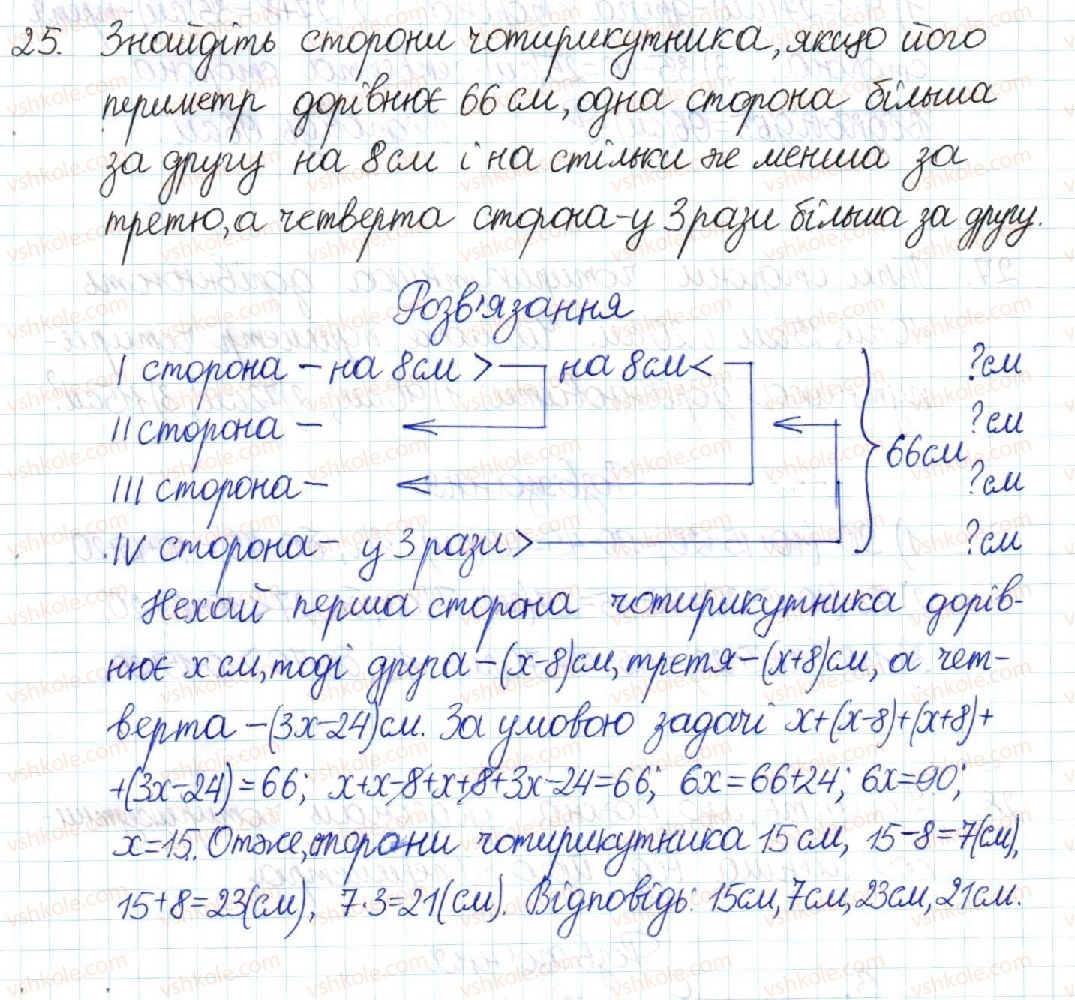 25. Знайдіть сторони чотирикутника, якщо його
периметр дорівнює 66 см, одна сторона більша
за другу на 8 см і на стільки же менша за
третю, а четверта сторона - у 3 рази більша за другу.
Розв'язання
I сторона - на 8 см > на 8 см < ?см
II сторона - ?см
66 см
III сторона - ?см
IV сторона - у 3 рази > ?см
Нехай перша сторона чотирикутника дорів-
нює x см, тоді друга - (x-8) см, третя - (x+8) см, а чет-
верта - (3x-24) см. За умовою задачі x+(x-8)+(x+8)+
+(3x-24)=66; x+x-8+x+8+3x-24=66; 6x=66+24; 6x=90;
x=15. Отже, сторони чотирикутника 15 см, 15-8=7(см),
15+8=23(см), 7·3=21(см). Відповідь: 15см, 7см, 23см, 21см.